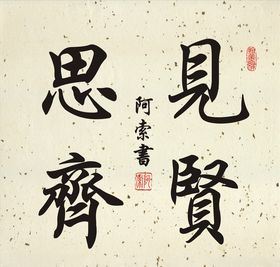 見賢
思齊
阿索書